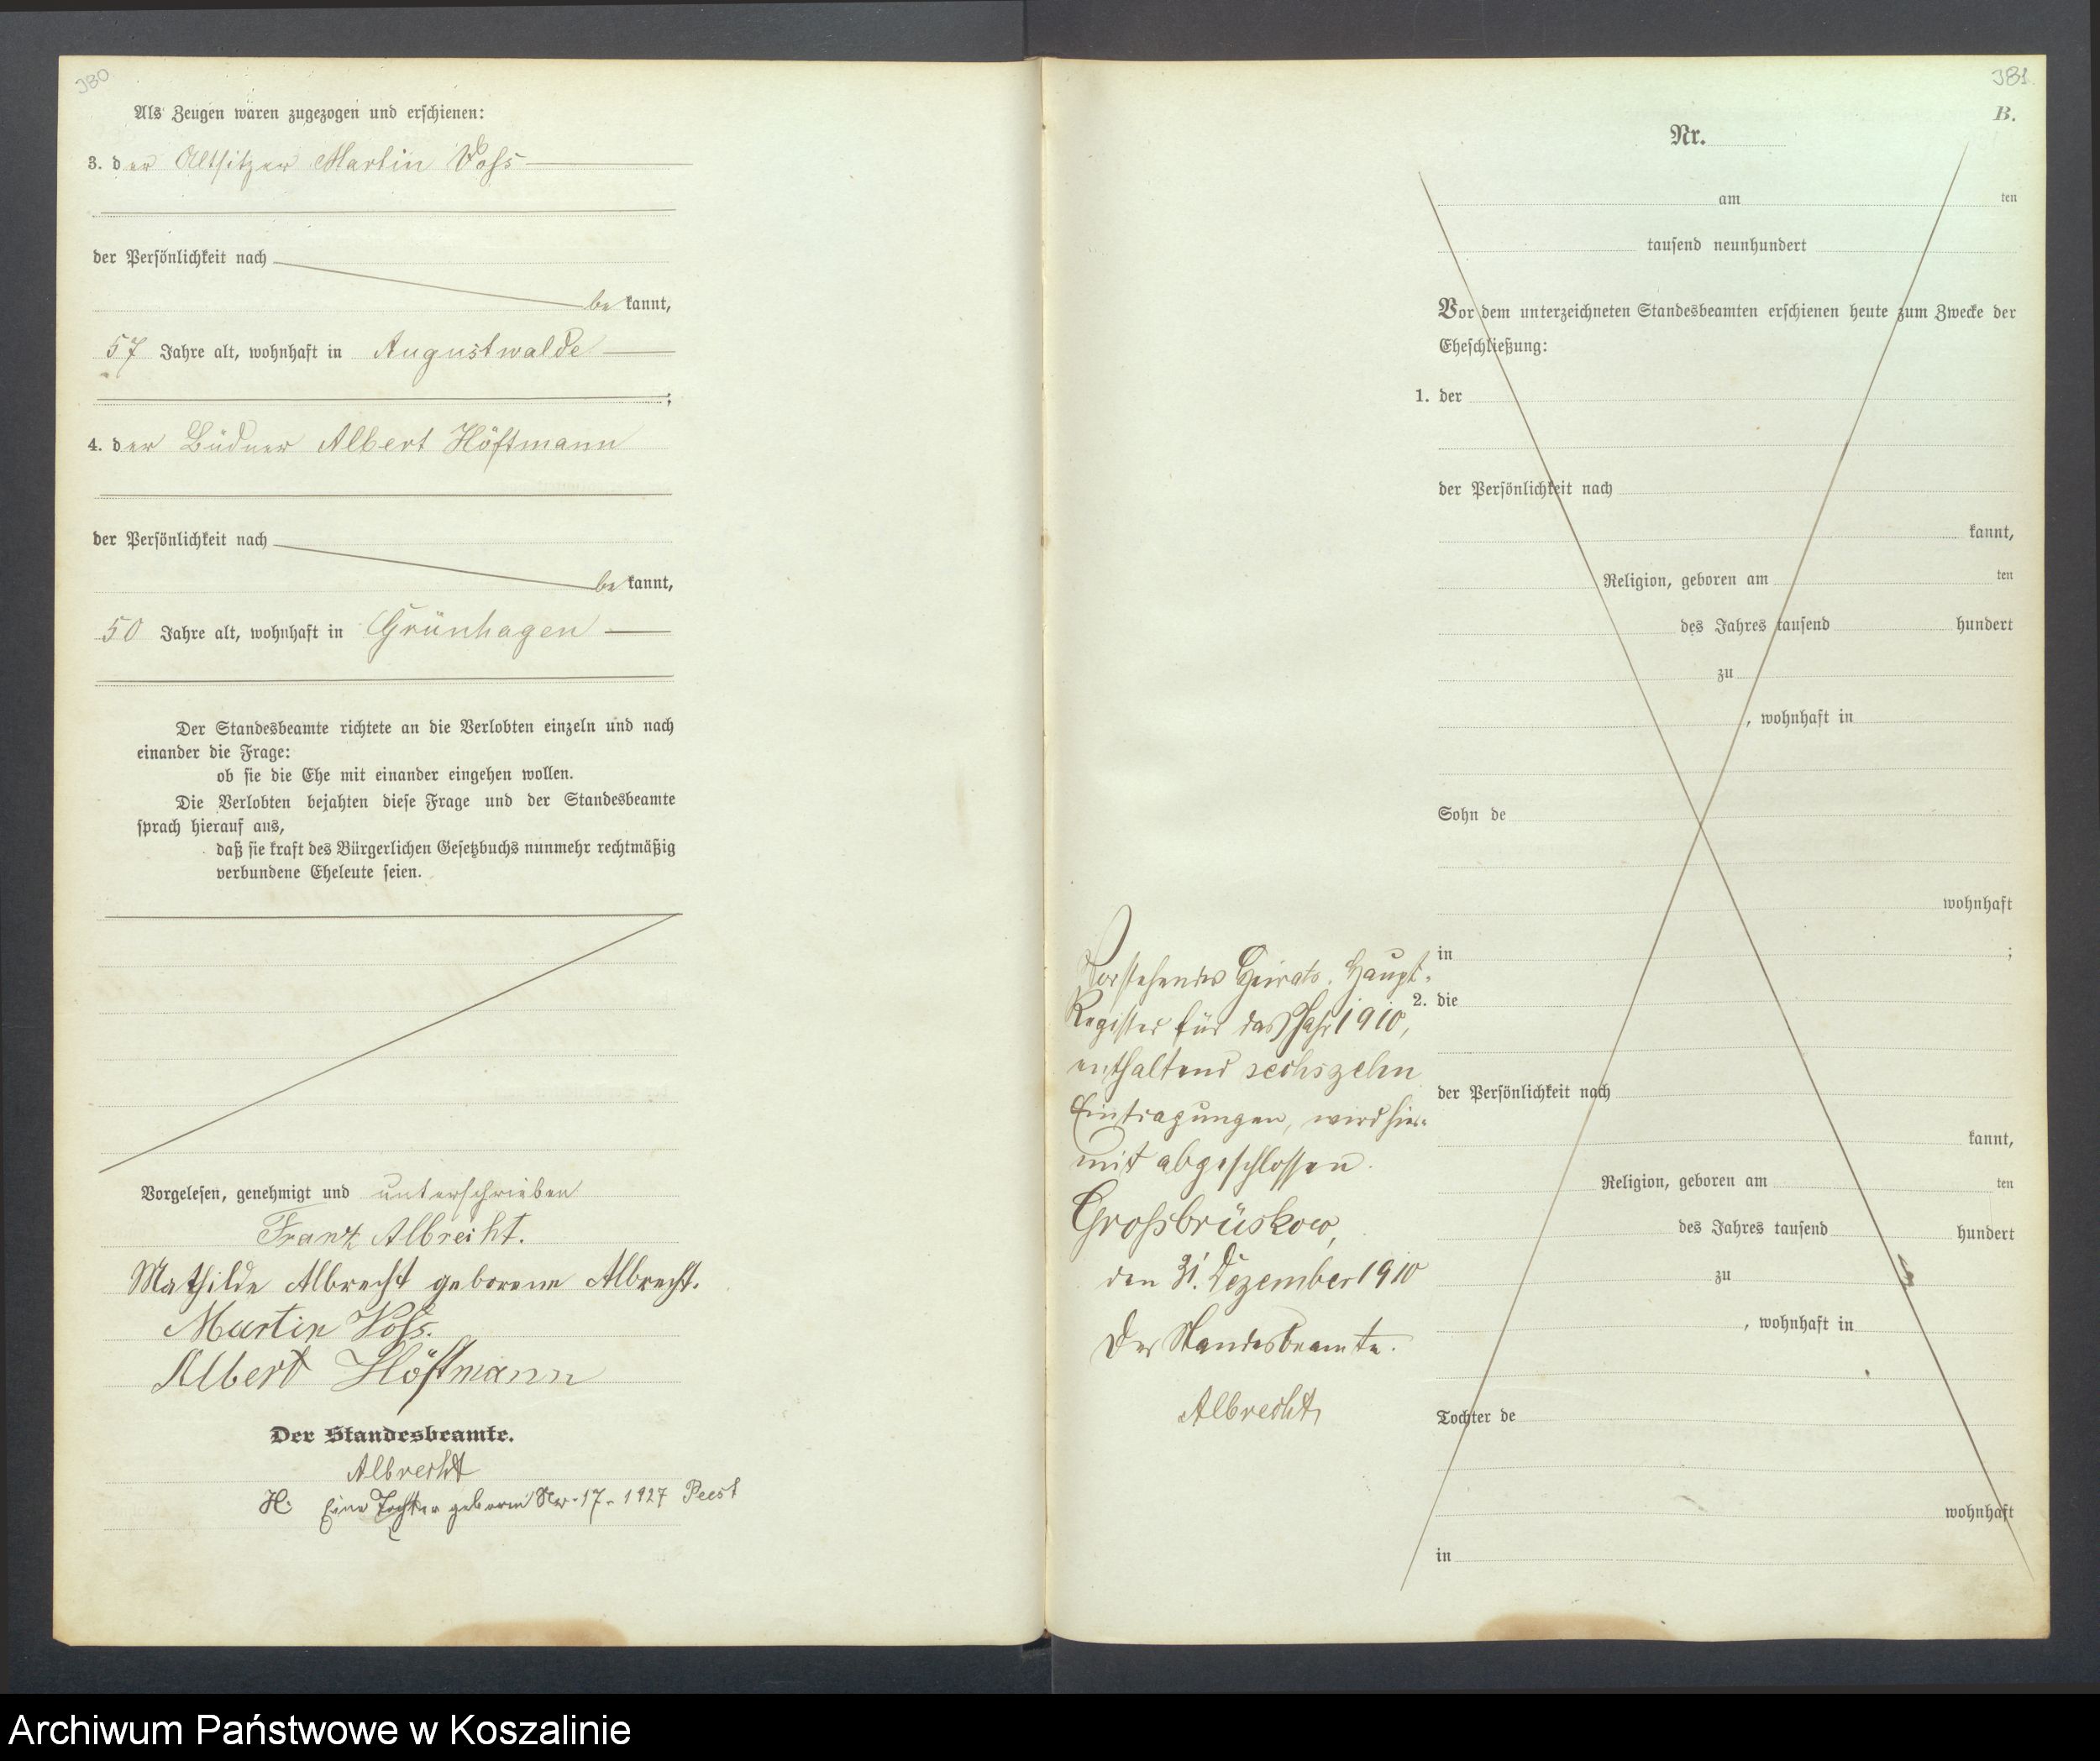 380
Als Zeugen waren zugezogen und erschienen:
3. der Altsitzer Martin Voss
der Persönlichkeit nach
be kannt,
57 Jahre alt, wohnhaft in Augustwalde
;
4. der Büdner Albert Höftmann
der Persönlichkeit nach
be kannt,
50 Jahre alt, wohnhaft in Grünhagen
Der Standesbeamte richtete an die Verlobten einzeln und nach
einander die Frage:
ob sie die Ehe mit einander eingehen wollen.
Die Verlobten bejahten diese Frage und der Standesbeamte
sprach hierauf aus,
daß sie kraft des Bürgerlichen Gesetzbuchs nunmehr rechtmäßig
verbundene Eheleute seien.
Vorgelesen, genehmigt und unterschrieben
Franz Albrecht.
Mathilde Albrecht geborene Albrecht.
Martin Voß.
Albert Höftmann
Der Standesbeamte.
Albrecht
H. Eine Tochter geboren Nr. 17. 1927 Peest
381
B.
Nr.
am ten
tausend neunhundert
Vor dem unterzeichneten Standesbeamten erschienen heute zum Zwecke der
Eheschließung:
1. der
der Persönlichkeit nach
kannt,
Religion, geboren am ten
des Jahres tausend hundert
zu
, wohnhaft in
Sohn de
wohnhaft
in ;
2. die
der Persönlichkeit nach
kannt,
Religion, geboren am ten
des Jahres tausend hundert
zu
, wohnhaft in
Tochter de
wohnhaft
in
Vorstehendes Heirats-Haupt-
Register für das Jahr 1910,
enthaltend sechszehn
Eintragungen, wird hier-
mit abgeschlossen.
Großbrüskow,
den 31. Dezember 1910
Der Standesbeamte.
Albrecht
Archiwum Państwowe w Koszalinie